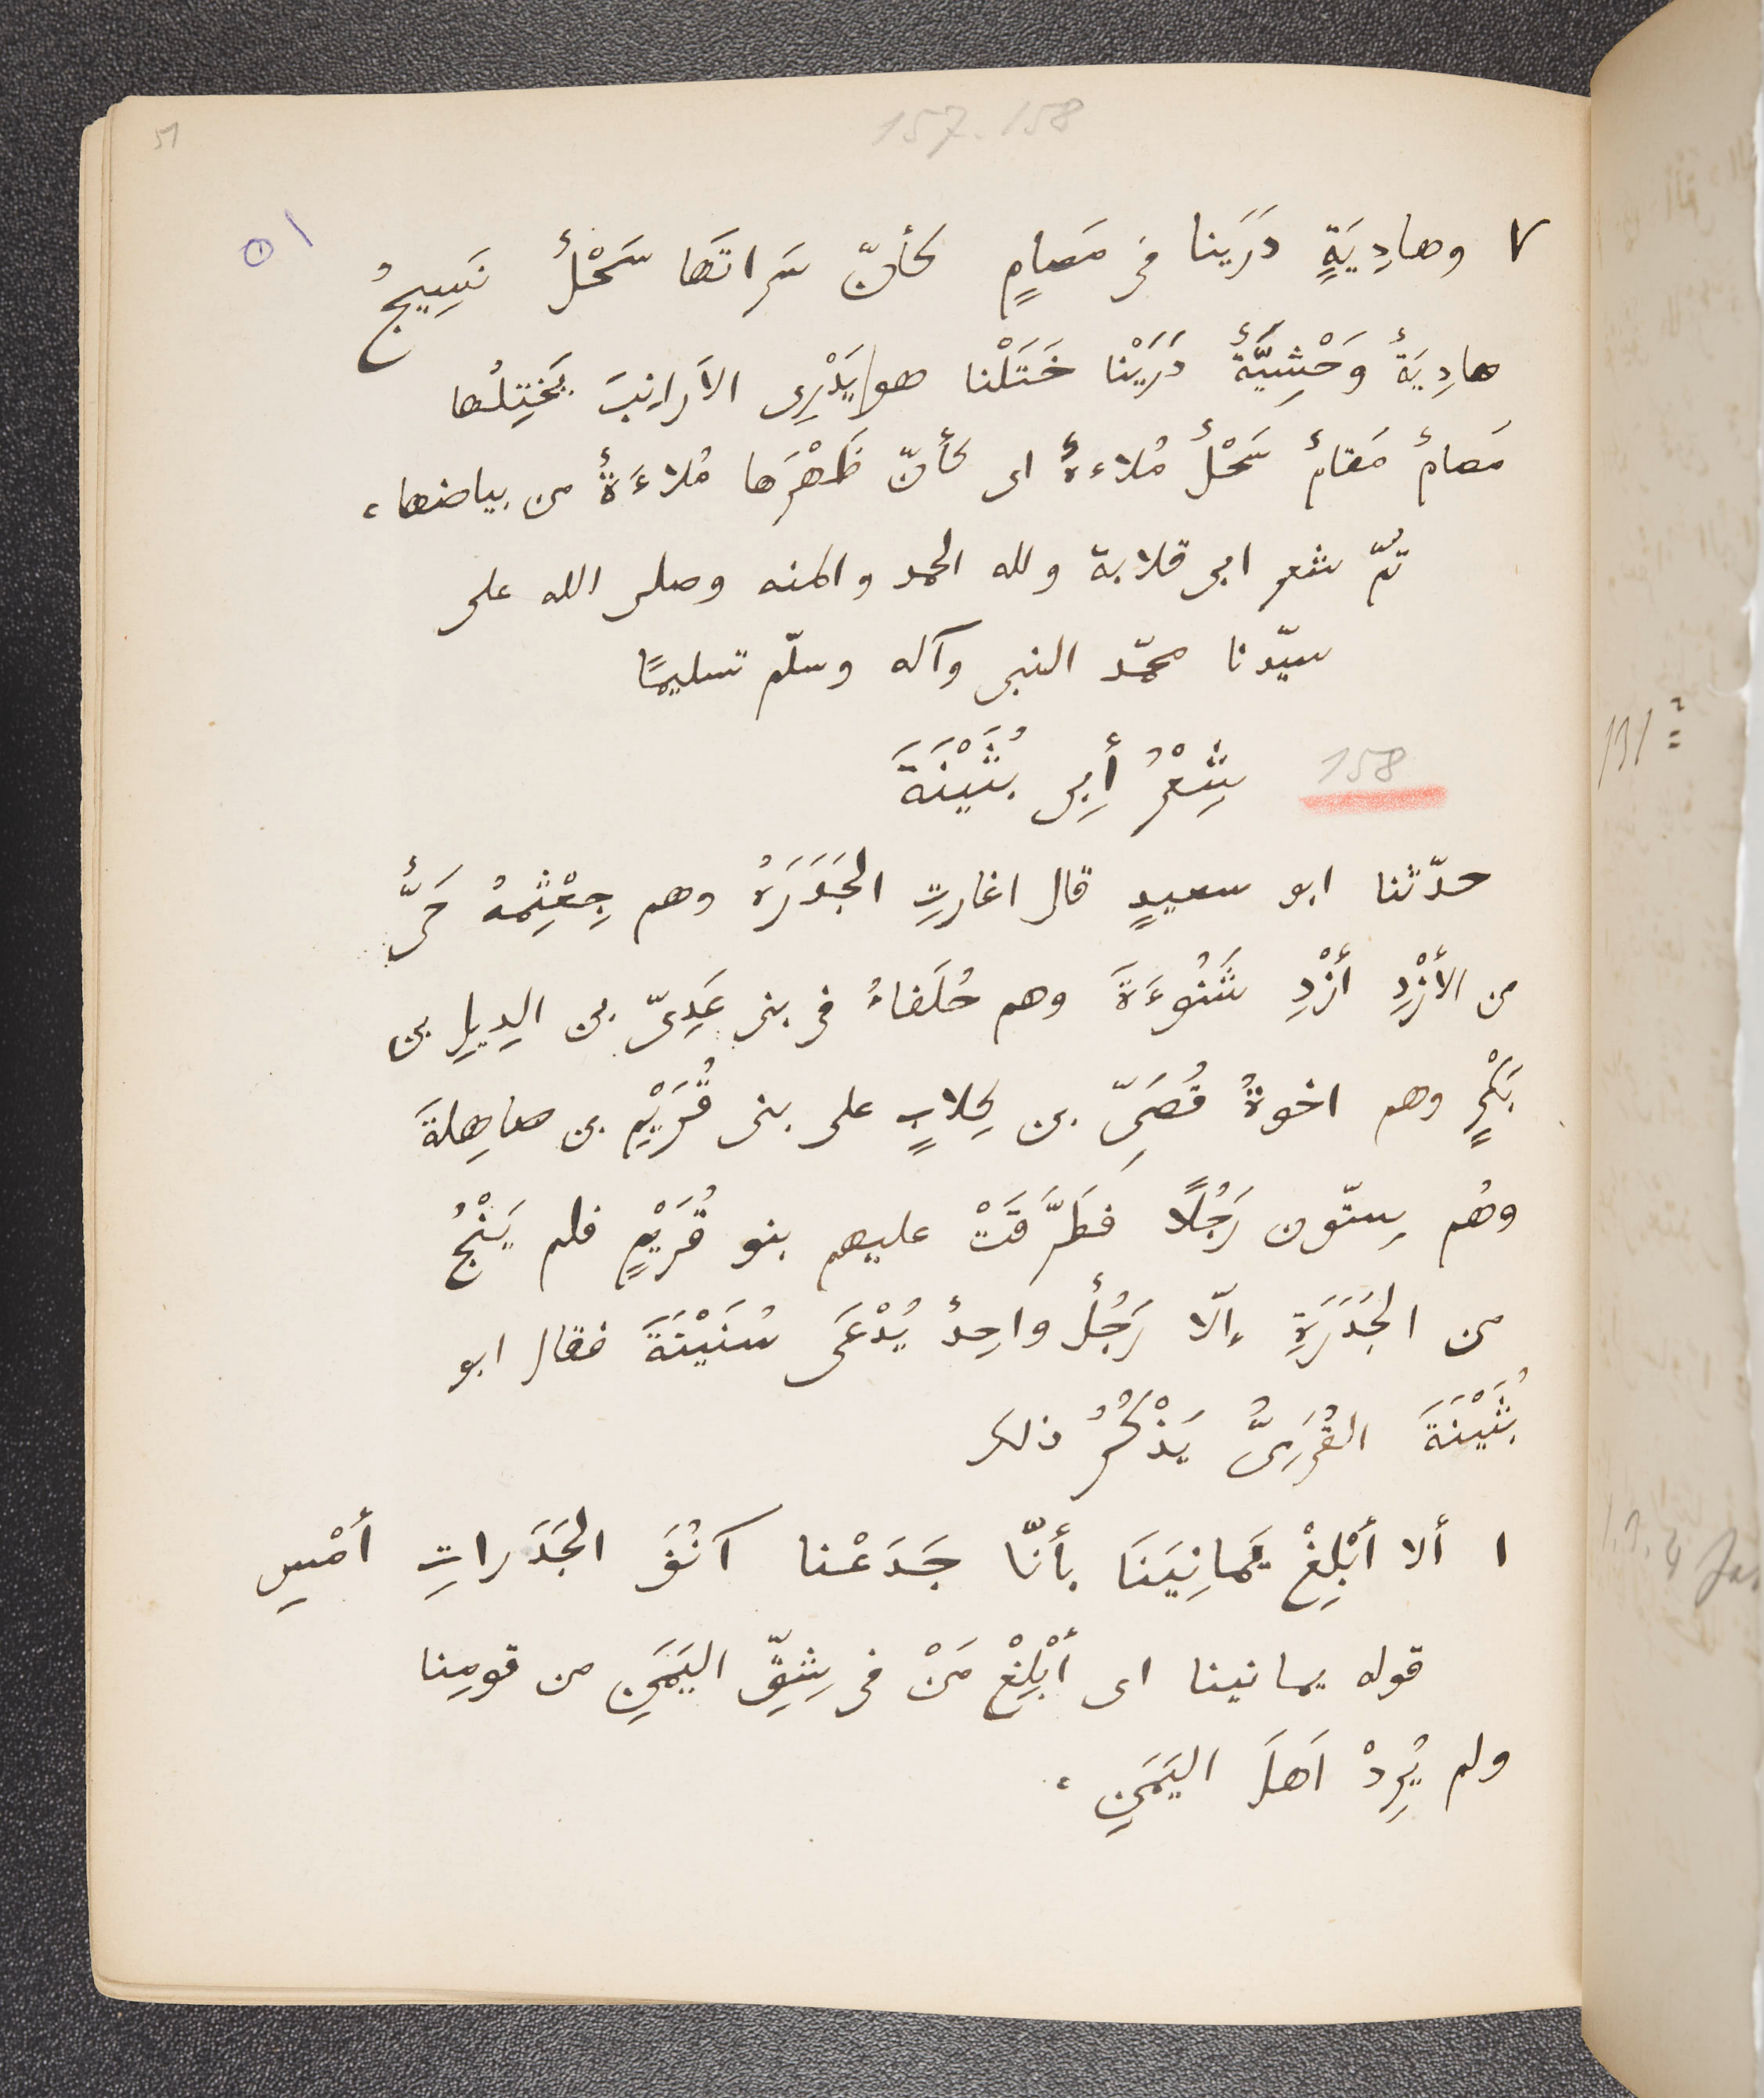 51
157-158
٥١
٧ وهادِيَةٍ دَرَينا فى مَصامٍ كأنّ سَراتَها سَحْلٌ نَسِيجُ
هادِيَةٌ وَحْشِيَّةٌ دَرَيْنا خَتَلْنا هو يَدْرِى الأَرانِبَ يَخْتِلُها
مَصامٌ مَقامٌ سَحْلٌ مُلاءةٌ اى كأنّ ظَهْرَها مُلاءَةٌ من بياضها ،
تمّ شعر ابى قلابة ولله الحمد والمنه وصلى الله على
سيّدنا محمّد النبى وآله وسلّم تسليمًا
158 شِعْرُ أَبِى بُثَيْنَةَ
حدّثنا ابو سعيدٍ قال اغارتِ الجَدَرَةُ وهم جِعْثِمةُ حَىٌّ
من الأَزْدِ أَزْدِ شَنُوءَةَ وهم حُلَفاءُ فى بنى عَدِىّ بن الدِيلِ بن
بَكْرٍ وهم اخوةُ قُصَىِّ بن كِلابٍ على بنى قُرَيْمِ بن صاهِلةَ
وهُم سِتّون رَجُلًا فَطَرَّقَتْ عليهم بنو قُرَيْمٍ فلم يَنْجُ
من الجَدَرَةِ إلّا رَجُلٌ واحِدٌ يُدْعَى سُنَيْنَةَ فقال ابو
بُثَيْنَةَ القُرَمِىُّ يَذْكُرُ ذلك
١ ألا أَبْلِغْ يَمانِيَنَا بأَنّا جَدَعْنا آنُفَ الجَدَراتِ أَمْسِ
قوله يمانينا اى أَبْلِغْ مَنْ فى شِقِّ اليَمَنِ من قومِنا
ولم يُرِدْ اَهلَ اليَمَنِ ،